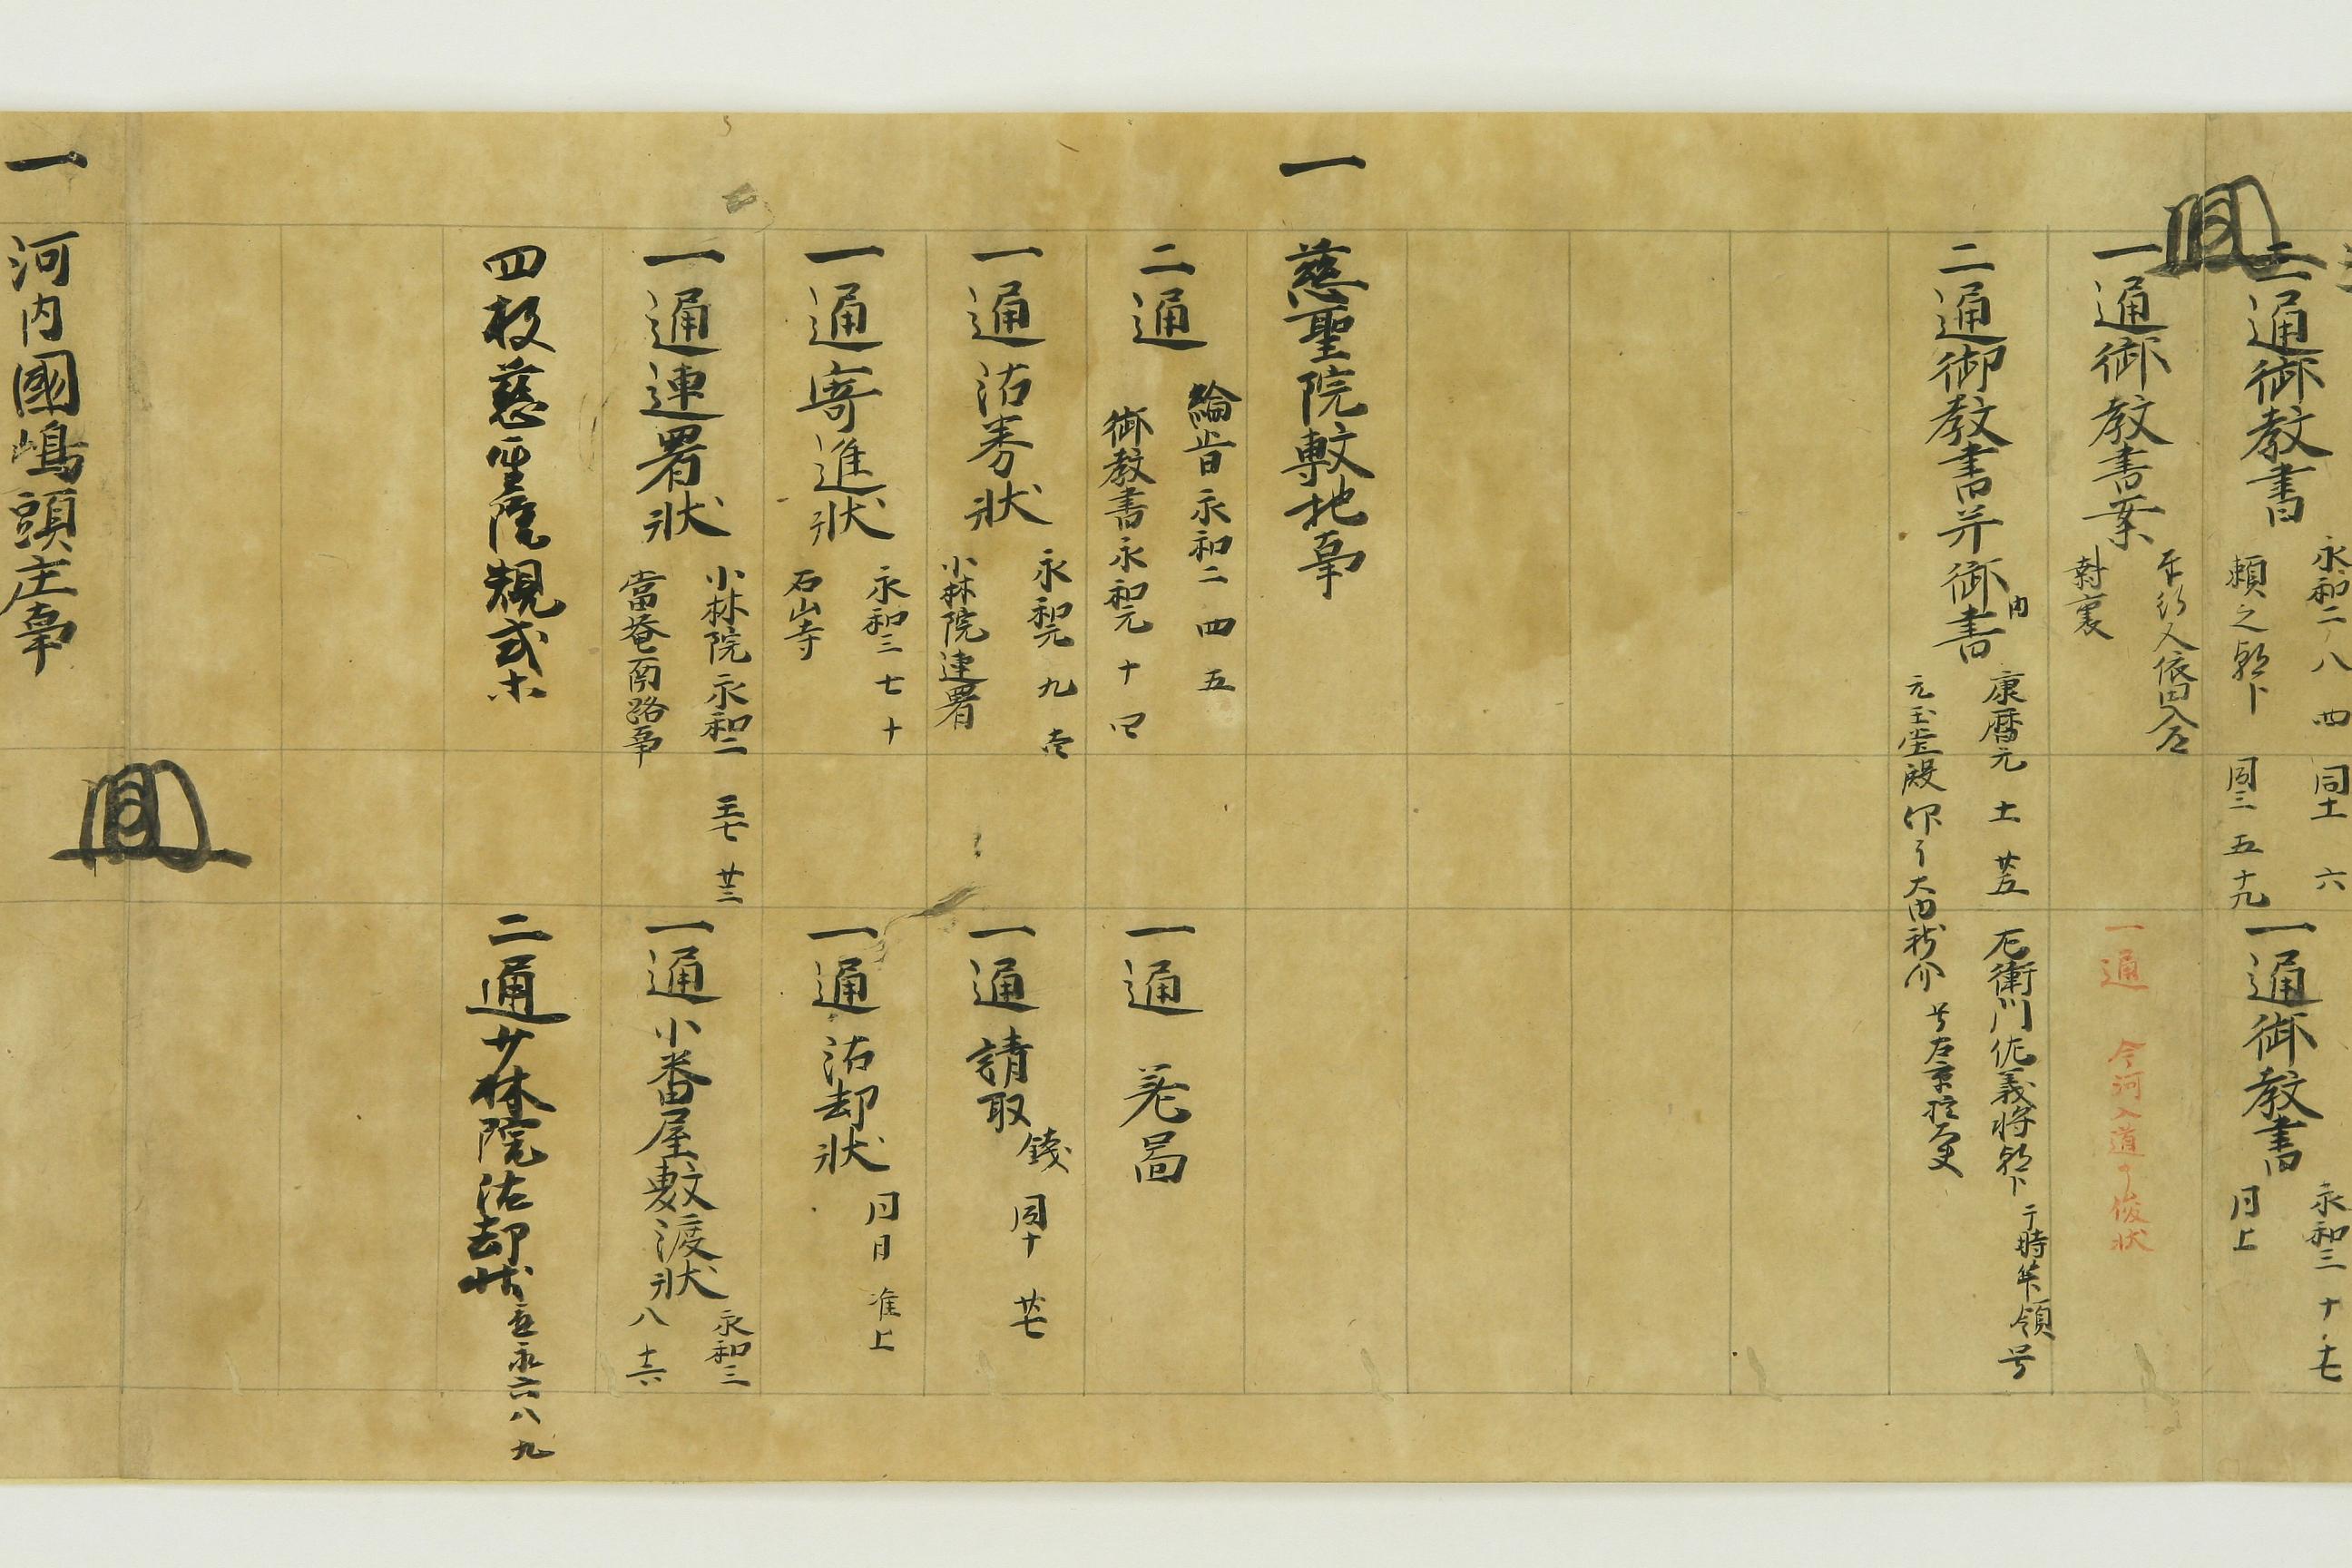 二通御教書 永和二 八 四 同十一 六
頼之朝臣 同三 五 十九
一通御教書 永和三 十 十七
同上
一通御教書案
封裏
一通 今河入道 俊状
二通御教書并御内書 康暦元 十一 廿五 左衛門佐義将朝臣 于時管領
一 慈聖院敷地事
二通 綸旨 永和二 四 五
御教書 永和元 十 四
一通 差図
一通 沽券状 永和元 九
小林院連署
一通 請取 銭 同十 廿七
一通 寄進状 永和三 七 十
石山寺
一通 沽却状 同日 准上
一通 連署状 小林院 永和二 廿三
當菴南路事
一通 小番屋敷渡状 永和三
八 十六
四枚 慈聖院規式等
二通 少林院沽却状 應永六 八 九
一 河内國嶋頭庄事